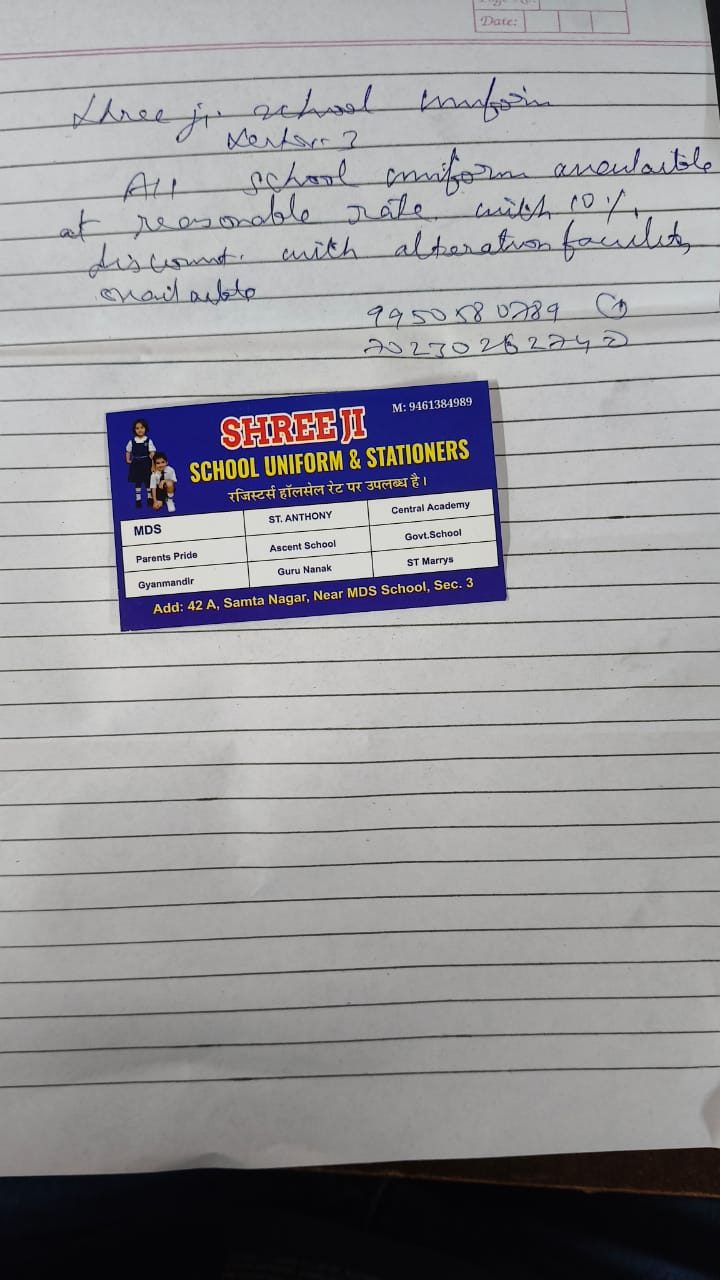 Date:
Shree ji school uniform
Sector-3
All school uniform available
at reasonable rate with 10%
discount. with alteration facility
available
9950580789 ①
7023026274 ②
SHREE JI
M: 9461384989
SCHOOL UNIFORM & STATIONERS
रजिस्टर्स हॉलसेल रेट पर उपलब्ध है।
MDS ST. ANTHONY Central Academy
Parents Pride Ascent School Govt.School
Gyanmandir Guru Nanak ST Marrys
Add: 42 A, Samta Nagar, Near MDS School, Sec. 3